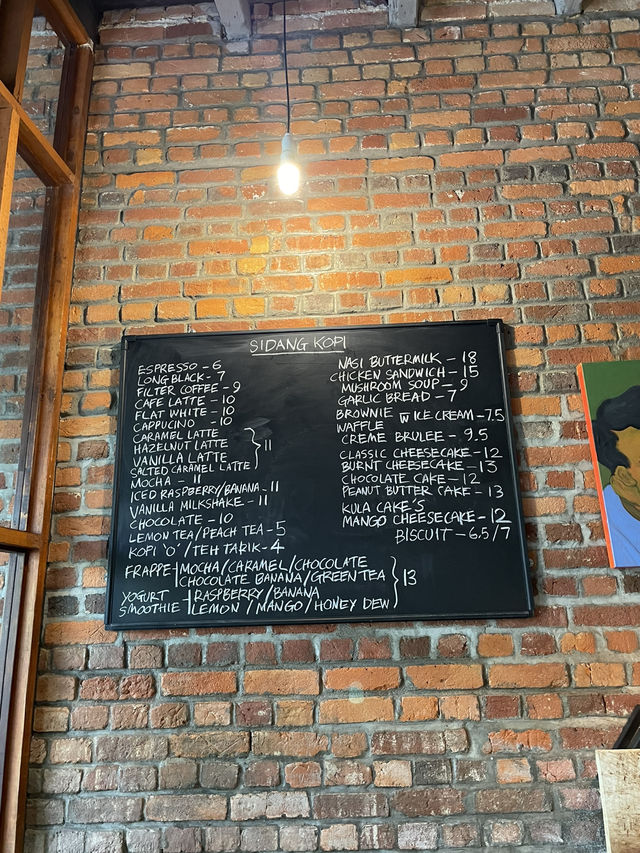 SIDANG KOPI
ESPRESSO - 6
LONG BLACK - 7
FILTER COFFEE - 9
CAFE LATTE - 10
FLAT WHITE - 10
CAPPUCINO - 10
CARAMEL LATTE
HAZELNUT LATTE
VANILLA LATTE
SALTED CARAMEL LATTE
11
MOCHA - 11
ICED RASPBERRY/BANANA - 11
VANILLA MILKSHAKE - 11
CHOCOLATE - 10
LEMON TEA/PEACH TEA - 5
KOPI 'O' / TEH TARIK - 4
FRAPPE MOCHA/CARAMEL/CHOCOLATE
CHOCOLATE BANANA/GREEN TEA
YOGURT RASPBERRY/BANANA
SMOOTHIE LEMON / MANGO / HONEY DEW
13
NASI BUTTERMILK - 18
CHICKEN SANDWICH - 15
MUSHROOM SOUP - 9
GARLIC BREAD - 7
BROWNIE W ICE CREAM - 7.5
WAFFLE
CREME BRULEE - 9.5
CLASSIC CHEESECAKE - 12
BURNT CHEESECAKE - 13
CHOCOLATE CAKE - 12
PEANUT BUTTER CAKE - 13
KULA CAKE'S
MANGO CHEESECAKE - 12
BISCUIT - 6.5/7